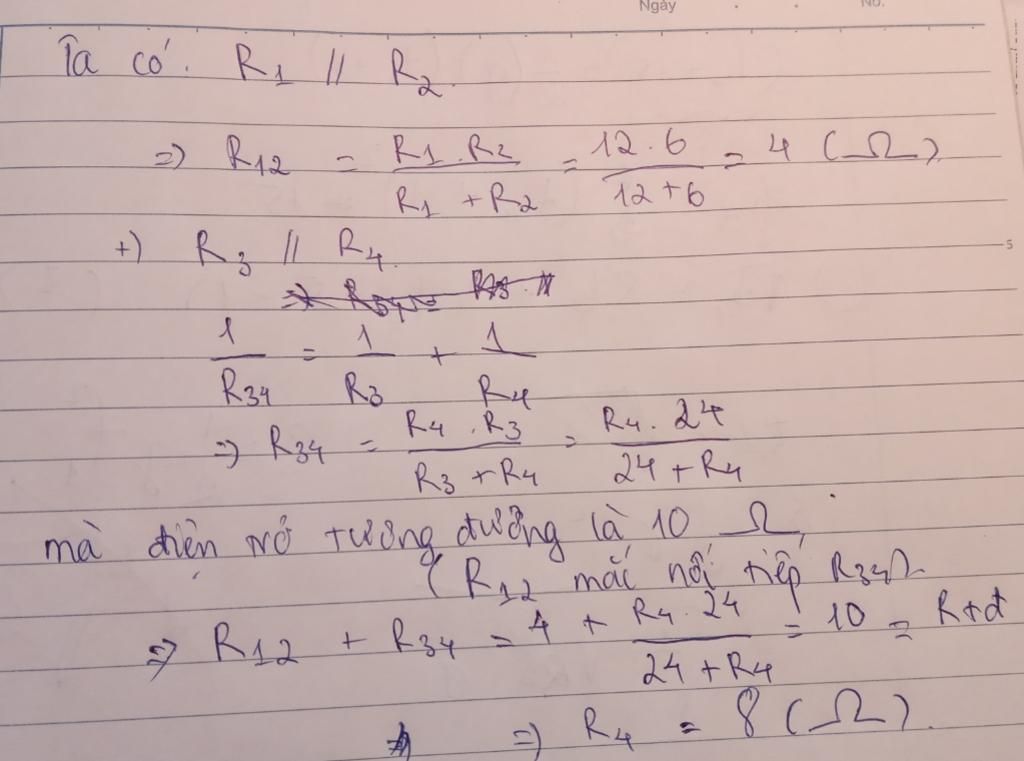 Ngày No.
Ta có. R₁ // R₂
=> R₁₂ = (R₁ . R₂)/(R₁ + R₂) = (12 . 6)/(12 + 6) = 4 (Ω).
5
+) R₃ // R₄.
1/R₃₄ = 1/R₃ + 1/R₄
=> R₃₄ = (R₄ . R₃)/(R₃ + R₄) = (R₄ . 24)/(24 + R₄)
mà điện trở tương đương là 10 Ω,
(R₁₂ mắc nối tiếp R₃₄).
=> R₁₂ + R₃₄ = 4 + (R₄ . 24)/(24 + R₄) = 10 = Rtđ
=> R₄ = 8 (Ω).